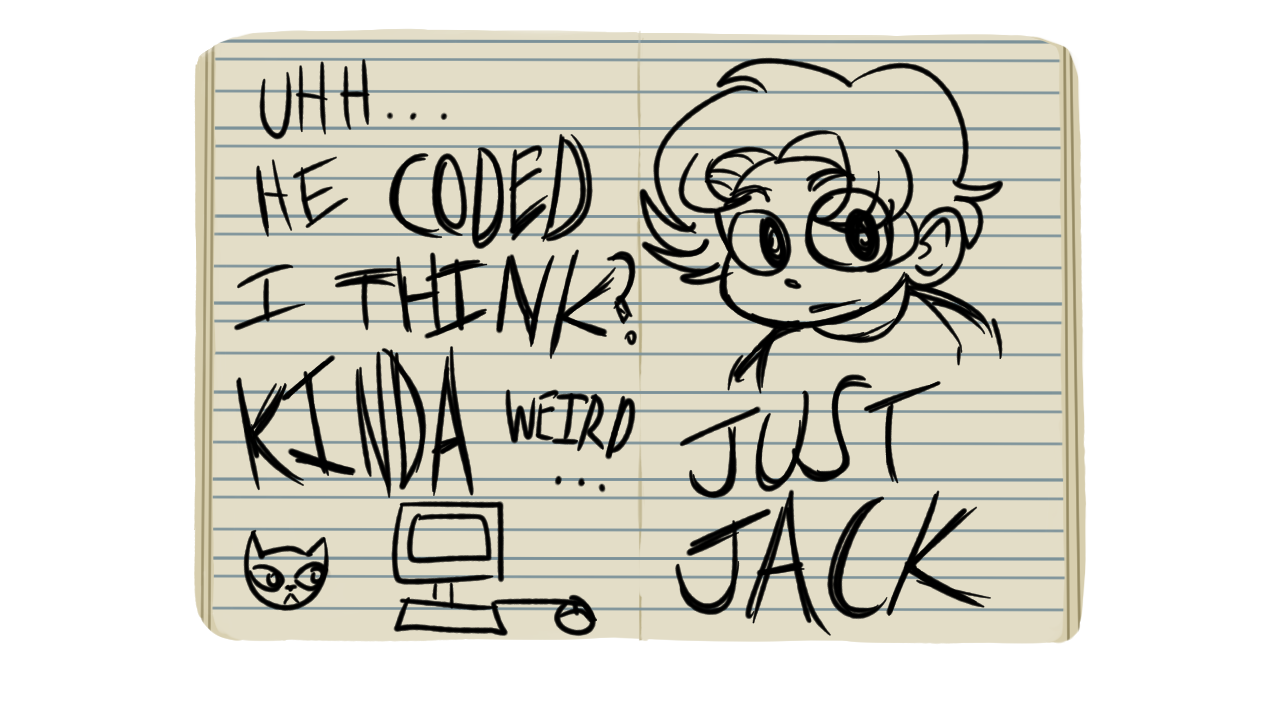 UHH...
HE CODED
I THINK?
KINDA WEIRD
...
JUST
JACK